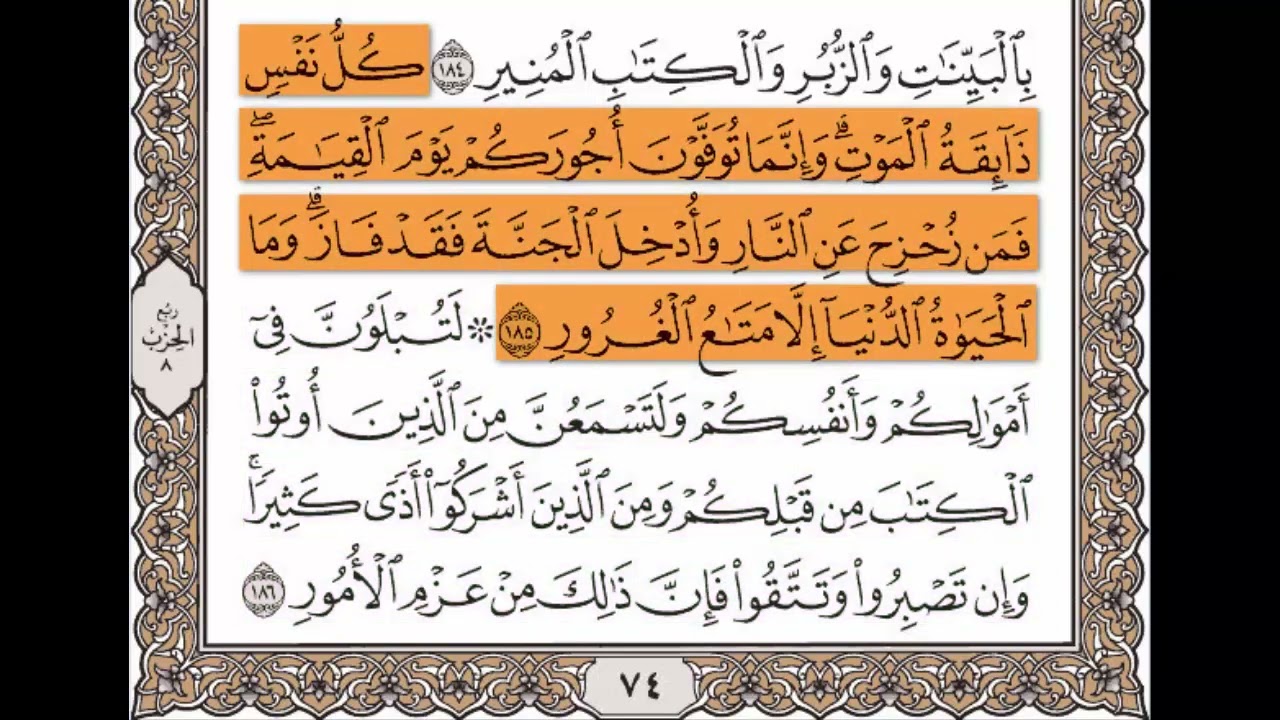 بِٱلْبَيِّنَٰتِ وَٱلزُّبُرِ وَٱلْكِتَٰبِ ٱلْمُنِيرِ ١٨٤ كُلُّ نَفْسٍ
ذَآئِقَةُ ٱلْمَوْتِۗ وَإِنَّمَا تُوَفَّوْنَ أُجُورَكُمْ يَوْمَ ٱلْقِيَٰمَةِۖ
فَمَن زُحْزِحَ عَنِ ٱلنَّارِ وَأُدْخِلَ ٱلْجَنَّةَ فَقَدْ فَازَۗ وَمَا
ٱلْحَيَوٰةُ ٱلدُّنْيَآ إِلَّا مَتَٰعُ ٱلْغُرُورِ ١٨٥ ۞ لَتُبْلَوُنَّ فِىٓ
أَمْوَٰلِكُمْ وَأَنفُسِكُمْ وَلَتَسْمَعُنَّ مِنَ ٱلَّذِينَ أُوتُوا۟
ٱلْكِتَٰبَ مِن قَبْلِكُمْ وَمِنَ ٱلَّذِينَ أَشْرَكُوٓا۟ أَذًى كَثِيرًاۚ
وَإِن تَصْبِرُوا۟ وَتَتَّقُوا۟ فَإِنَّ ذَٰلِكَ مِنْ عَزْمِ ٱلْأُمُورِ ١٨٦
رُبْع
الحِزْب
٨
٧٤